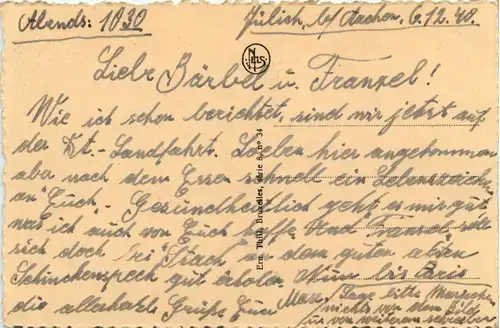 Abends: 1030
Jülich, b/ Aachen, 6.12.40.
NELS
Liebe Bärbel u. Franzel!
Wie ich schon berichtet, sind wir jetzt auf
der Dt.-Landfahrt. Soeben hier angekommen
aber nach dem Essen schnell ein Lebenszeichen
an Euch. Gesundheitlich geht es mir gut
was ich auch von Euch hoffe. Und Franzel soll
sich doch bei Euch an dem guten
Schinkenspeck gut erholen. Nun bis
die allerbeste Grüße Euer Max.
Ern. Thill, Bruxelles, Série 8, N° 34
bitte
nichts von dem Bild
u. von weiterem schreiben